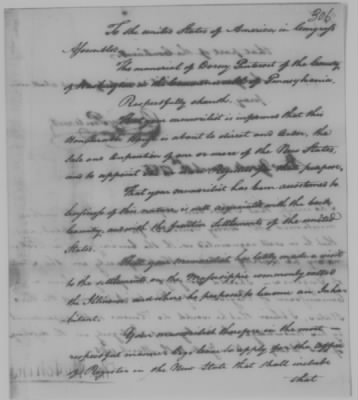 306
To the united States of America, in Congress
Assembled
The memorial of Dorsey Pentecost of the County
of Washington in the Commonwealth of Pennsylvania.
Respectfully sheweth.
That your memorialist is informed that this
Honourable House is about to direct and order, the
Sale and disposition of one or more of the New States,
and to appoint Registers for that purpose,
That your memorialist has been accustomed to
business of this nature, is well acquainted with the back
Country, and with the frontier Settlements of the united
States.
That your memorialist has lately made a visit
to the settlements on the Mississippi commonly called
the Illinois and where he proposes to become an Inha-
bitant.
Your memorialist therefore in the most
respectful manner begs leave to apply for the office
of Register in the New State that shall include
that